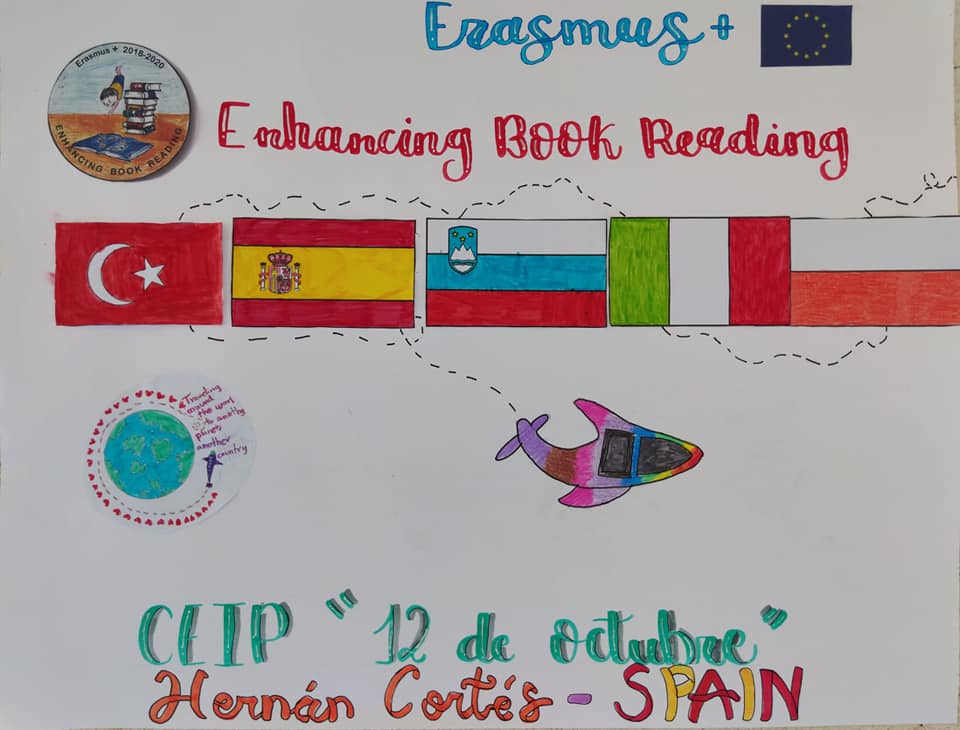 Erasmus +
Erasmus + 2018-2020
ENHANCING BOOK READING
Enhancing Book Reading
Traveling
around
the worl
to anothy
planet
another
country
CEIP "12 de octubre"
Hernán Cortés - SPAIN